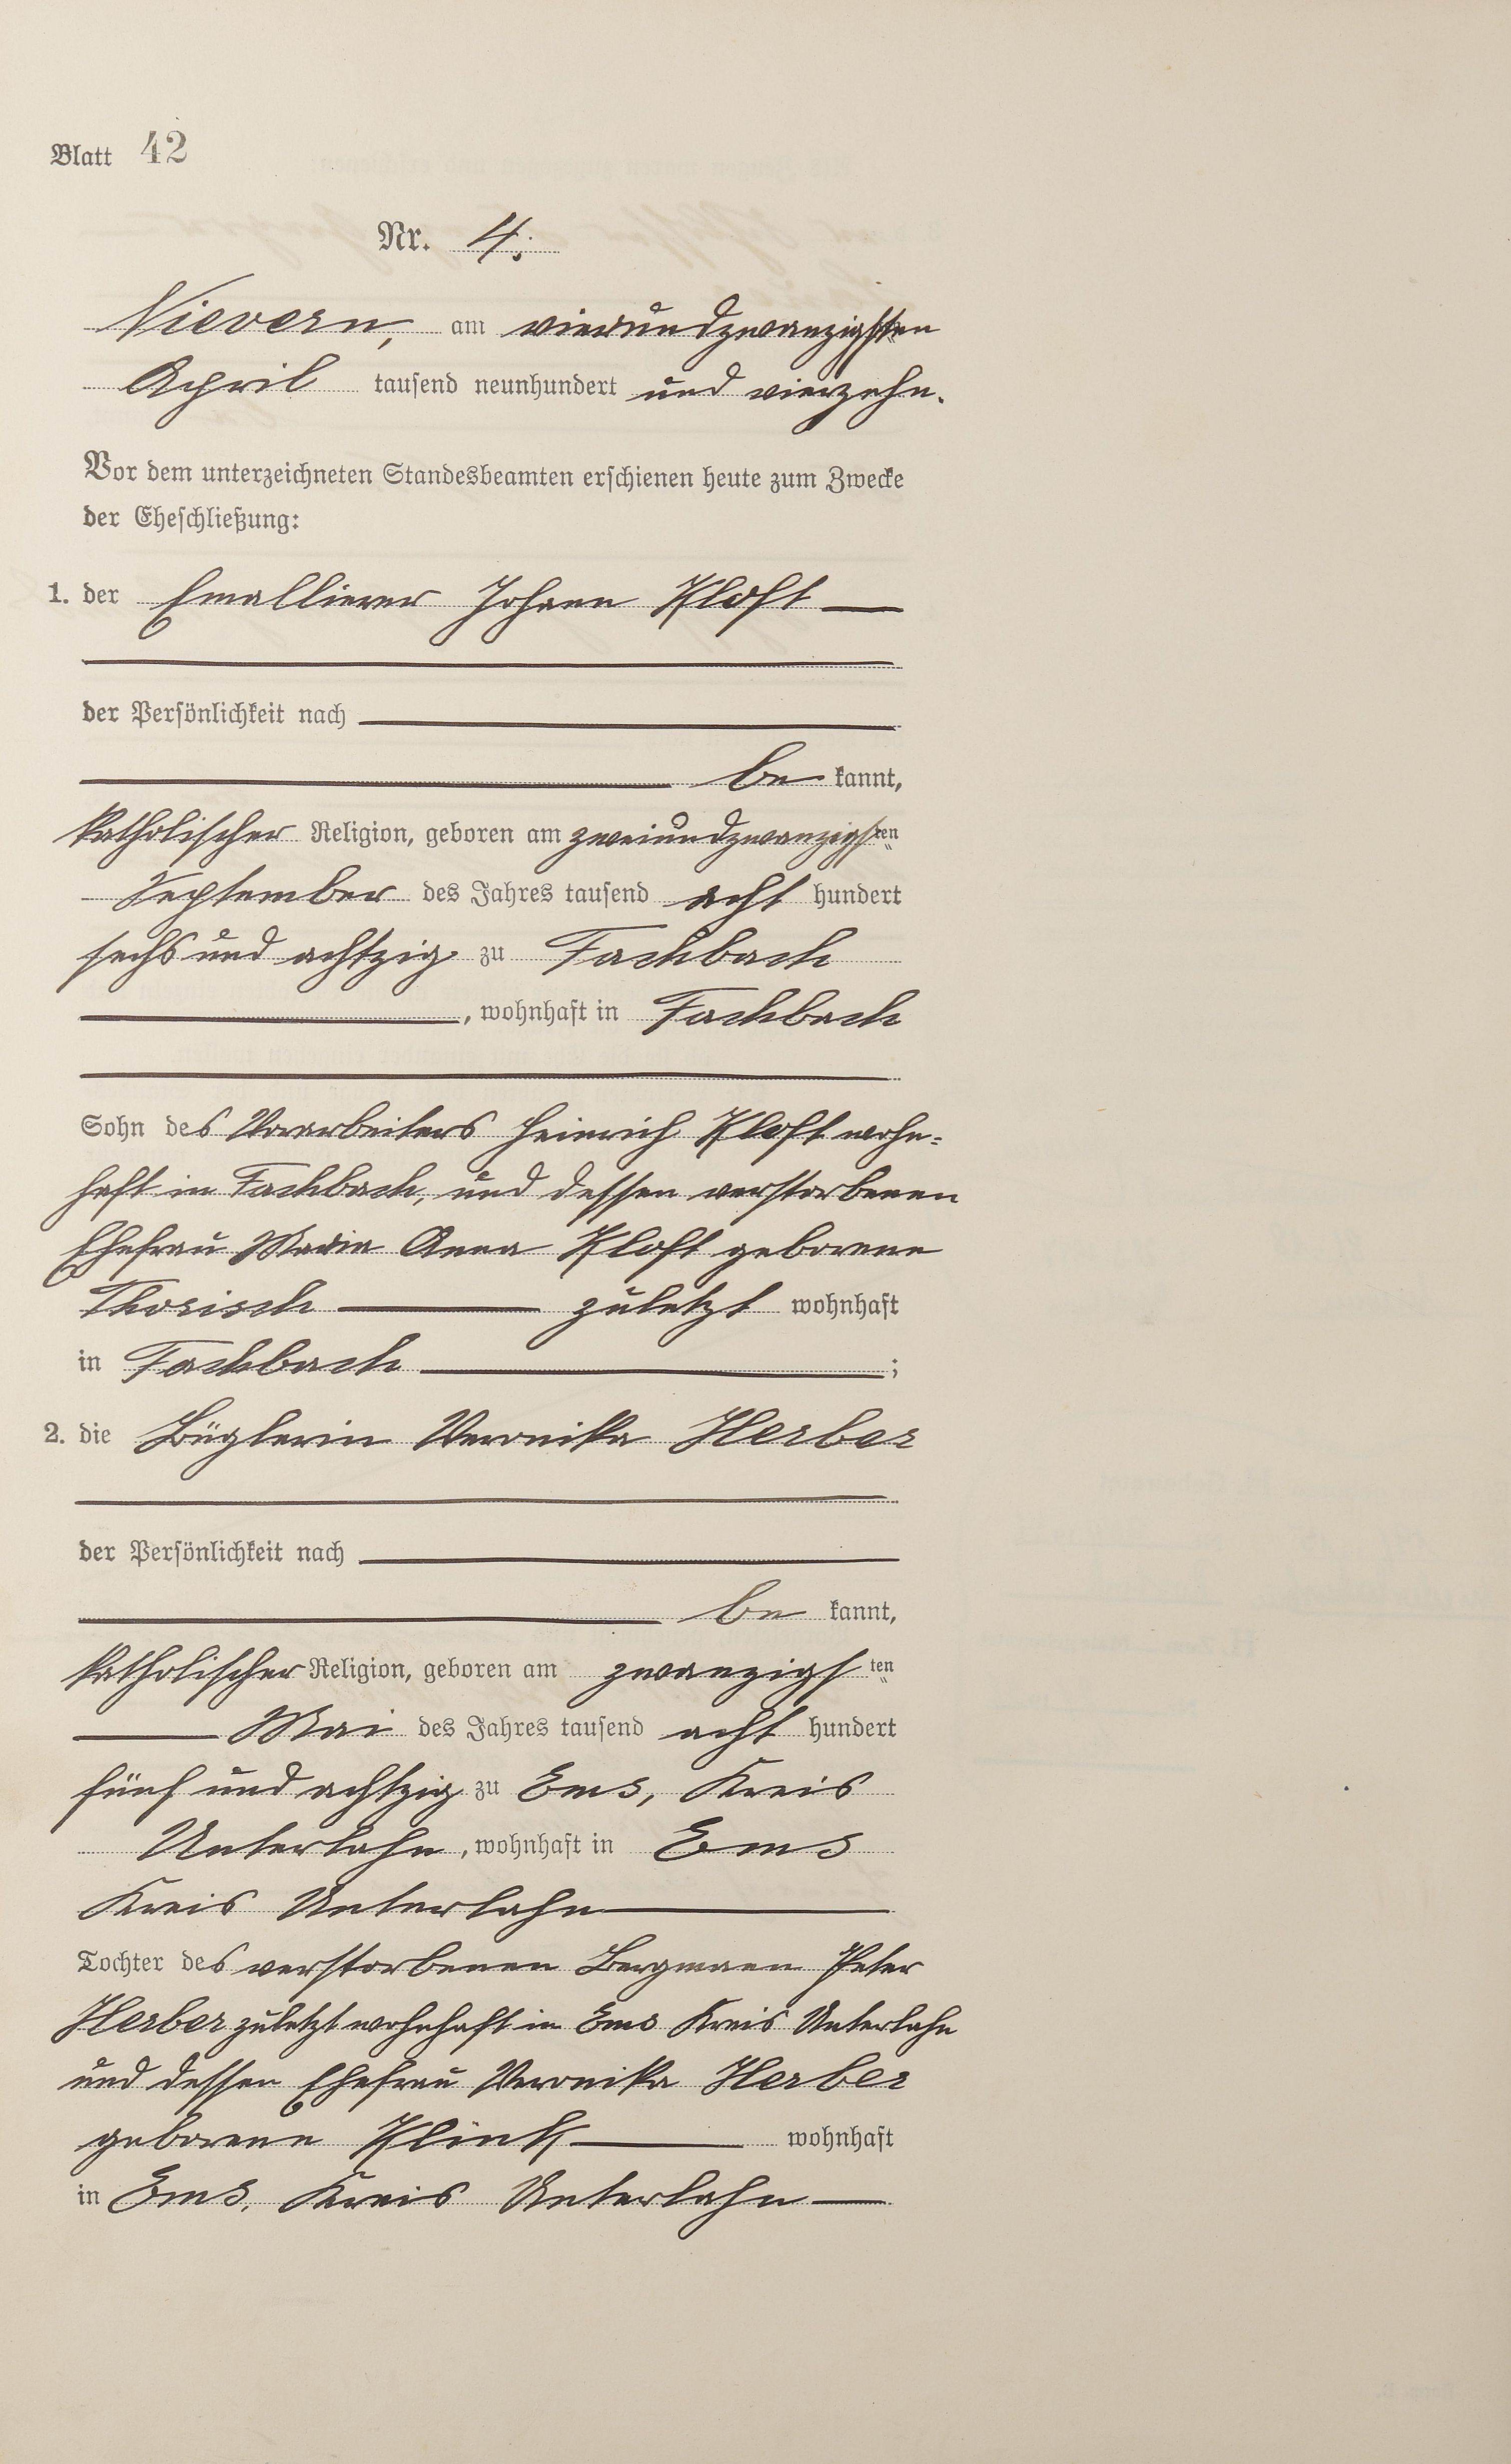 Blatt 42
Nr. 4.
Nievern, am vierundzwanzigsten
April tausend neunhundert und vierzehn.
Vor dem unterzeichneten Standesbeamten erschienen heute zum Zwecke
der Eheschließung:
1. der Emallierer Johann Kloft
der Persönlichkeit nach
be kannt,
katholischer Religion, geboren am zweiundzwanzigsten
September des Jahres tausend acht hundert
sechs und achtzig zu Fachbach
, wohnhaft in Fachbach
Sohn des Vorarbeiters Heinrich Kloft wohn=
haft in Fachbach, und dessen verstorbenen
Ehefrau Maria Anna Kloft geborene
Thorisch zuletzt wohnhaft
in Fachbach ;
2. die Büglerin Veronika Herber
der Persönlichkeit nach
be kannt,
katholischer Religion, geboren am zwanzigsten
Mai des Jahres tausend acht hundert
fünf und achtzig zu Ems, Kreis
Unterlahn, wohnhaft in Ems
Kreis Unterlahn
Tochter des verstorbenen Bergmann Peter
Herber zuletzt wohnhaft in Ems Kreis Unterlahn
und dessen Ehefrau Veronika Herber
geborene Klink wohnhaft
in Ems, Kreis Unterlahn